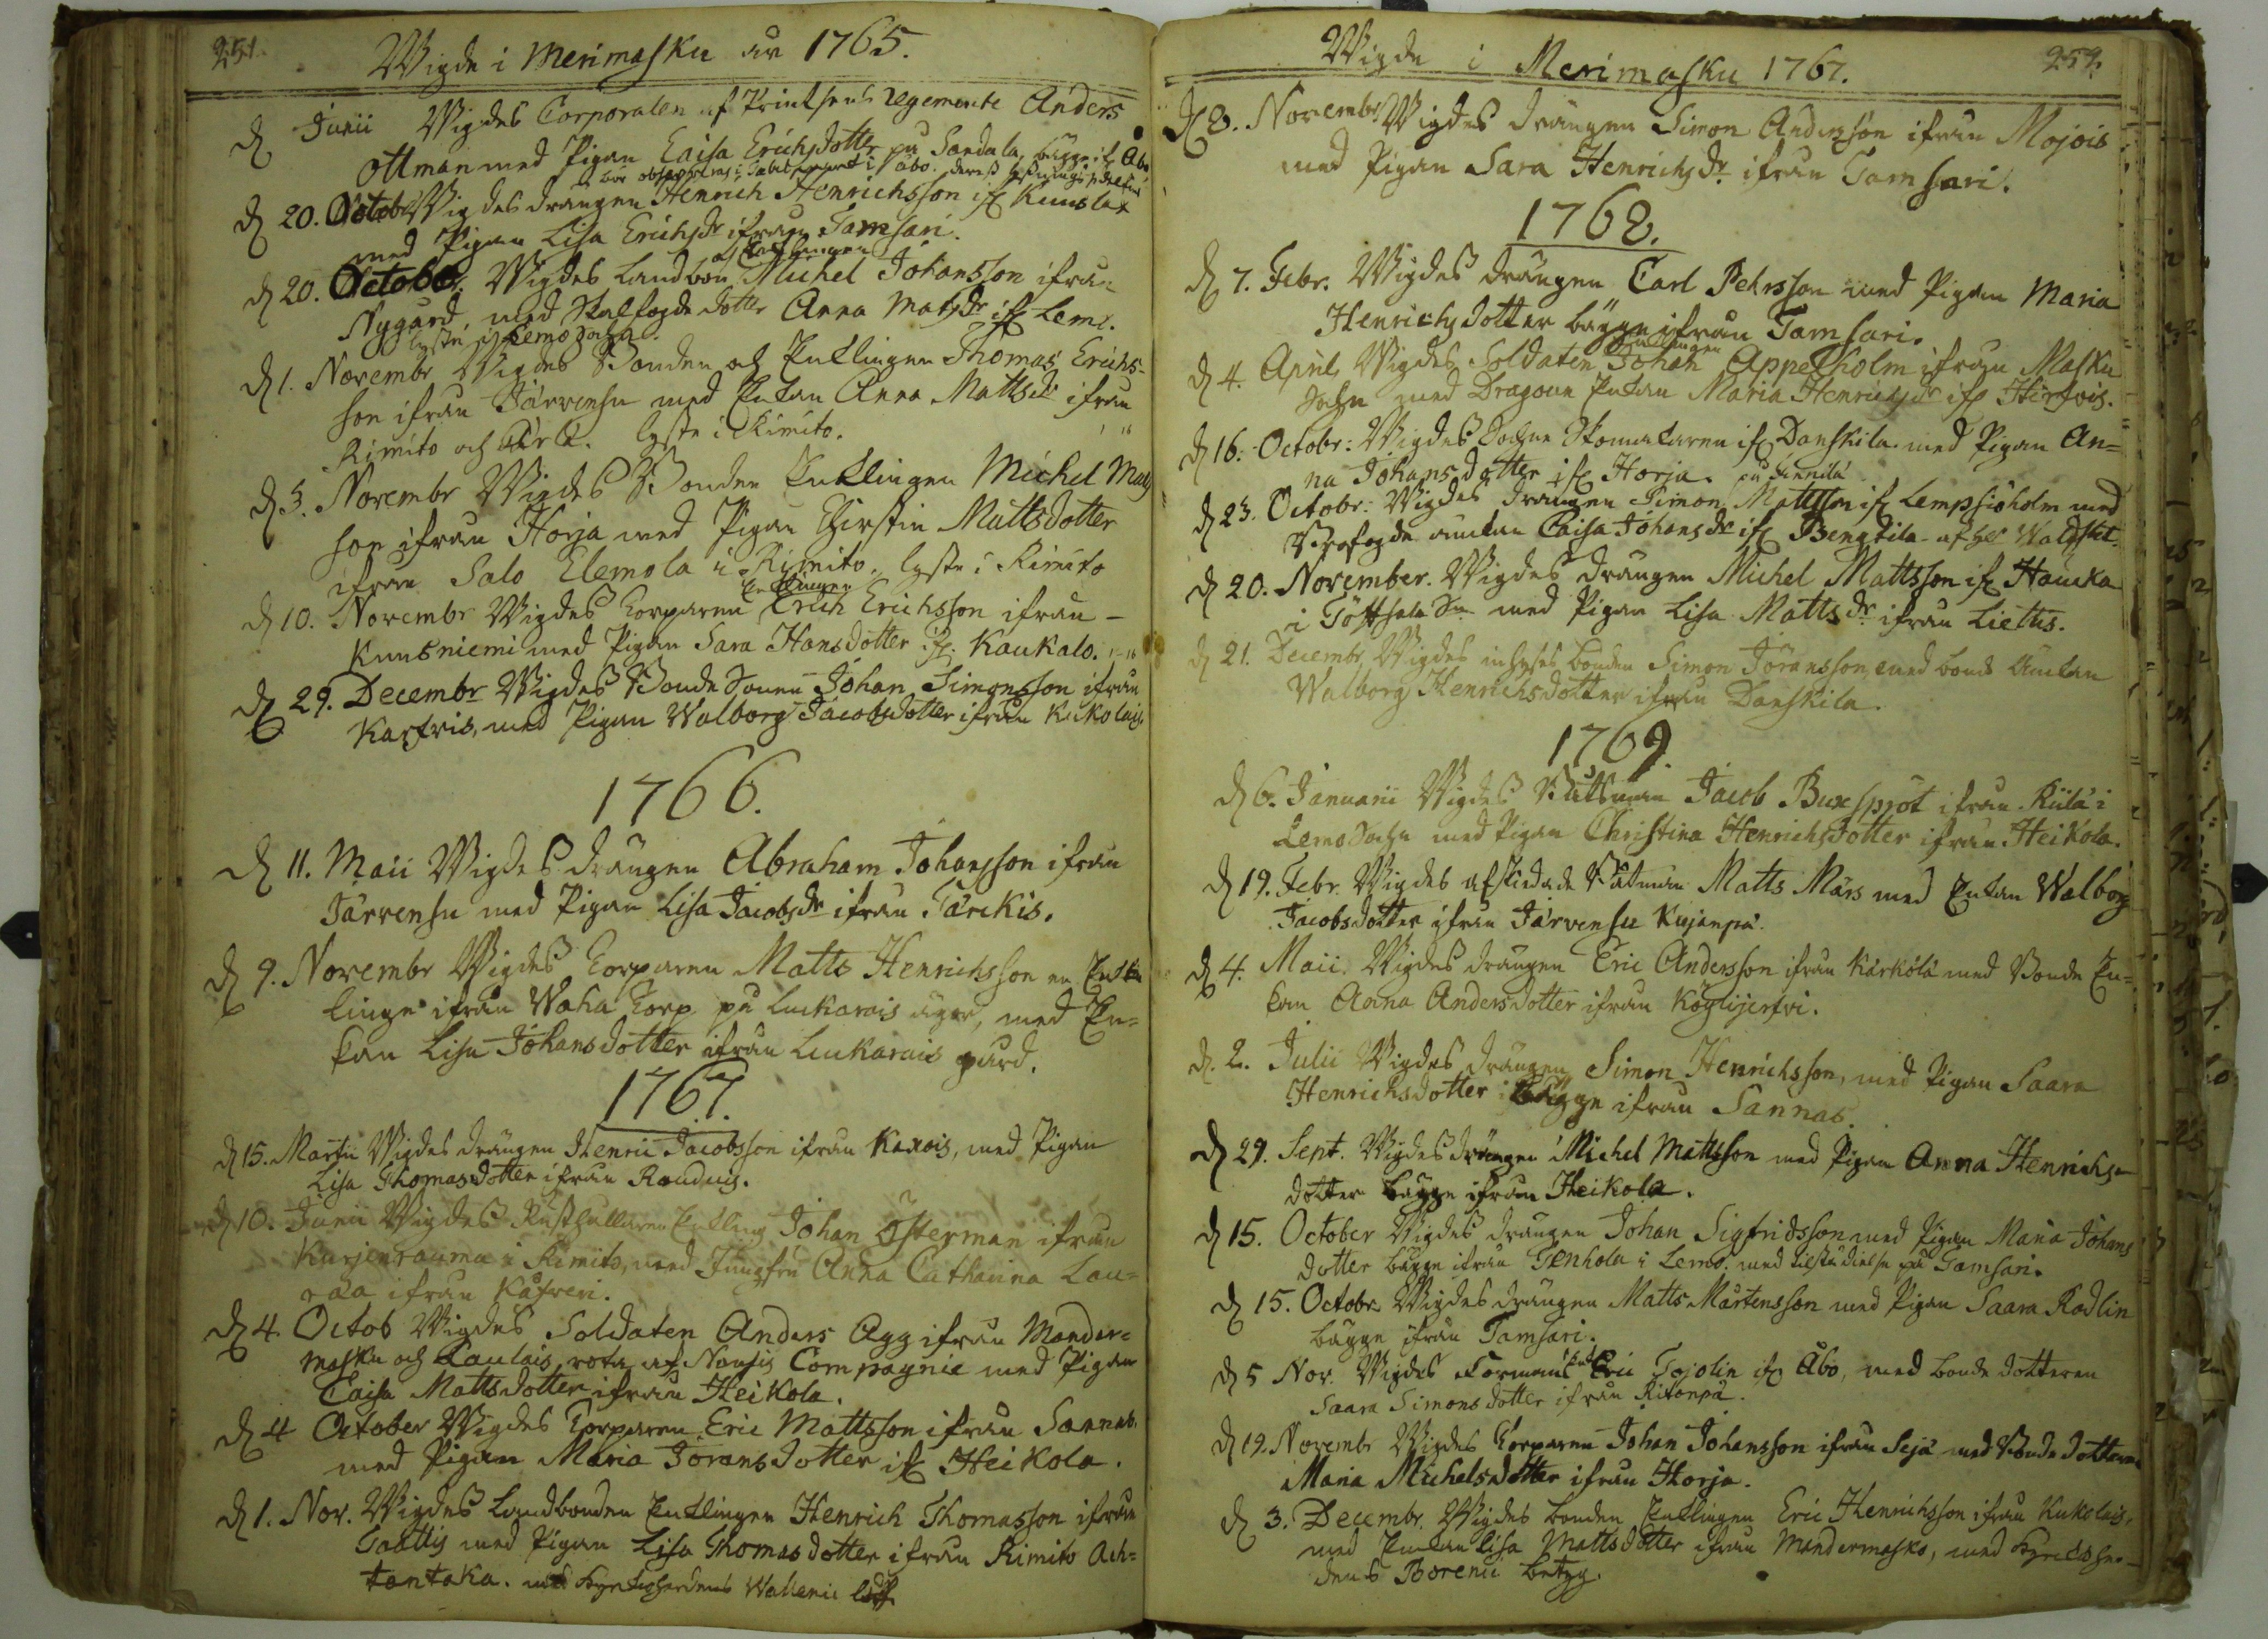 251.
Wigde i Merimasku åhr 1765.
d Junii Wigdes Corporalen af Printsens regemente Anders
Ottman med Pigan Caisa Erichsdotter på Sandala, bägge if. Åbo
d 20. Octob Wigdes drängen Henrich Henrichsson if. Kuuslax
med Pigan Lisa Erichsdr ifrån Tamsari.
och Encklingen
d 20. October. Wigdes Landbon Michel Johansson ifrån
Nygård, med Skalfogde dotter Anna Matsdr if. Lemo.
lyste i Lemo Sochn.
d 1. Novembr Wigdes Bonden och Encklingen Thomas Erichs-
son ifrån Järvensu med Enkan Anna Mattsdr ifrån
Rimito och lyste i Rimito.
d 3. Novembr Wigdes Bonden Encklingen Michel Mats
son ifrån Horja med Pigan Chirstin Mattsdotter
ifrån Salo Elemola i Rimito. lyste i Rimito
Encklingen
d 10. Novembr Wigdes Torparen Erich Erichsson ifrån -
Kuusniemi med Pigan Sara Hansdotter if. Kaukalo.
d 29. Decembr Wigdes Bonde Sonen Johan Simonsson ifrån
Karfvis, med Pigan Walborg Jacobsdotter ifrån Kukolais
1766.
d 11. Maii Wigdes drängen Abraham Johansson ifrån
Järvensu med Pigan Lisa Jacobsdr ifrån Tärckis.
d 9. Novembr Wigdes Torparen Matts Henrichsson en Enck
linge ifrån Waha Torp på Luckarais ägor, med En=
kan Lisa Johansdotter ifrån Luckarais gård.
1767.
d 15. Martii Wigdes drängen Henric Jacobsson ifrån Kaxois, med Pigan
Lisa Thomasdotter ifrån Rauduis.
d 10. Junii Wigdes Rusthållaren Enckling Johan Österman ifrån
Kurjenrauma i Rimito, med Jungfru Anna Catharina Lau=
ræa ifrån Kåfreri.
d 4. Octob Wigdes Soldaten Anders Agg ifrån Mander=
masku och Laulais rota af Nousis Compagnie med Pigan
Caisa Mattsdotter ifrån Heikola.
d 4 October Wigdes Torparen Eric Mattsson ifrån Sannas.
med Pigan Maria Joransdotter if. Heikola.
d 1. Nov. Wigdes Landbonden Encklingen Henrich Thomasson ifrån
Taattis med Pigan Lisa Thomasdotter ifrån Rimito Ach=
tantaka. med Kyrckoherdens Wallenii
252.
Wigde i Merimasku 1767.
d 8. Novembr Wigdes drängen Simon Andersson ifrån Mojois
med Pigan Sara Henrichsdr ifrån Tamsari.
1768.
d 7. Febr. Wigdes drängen Carl Pehrsson med Pigan Maria
Henrichsdotter bägge ifrån Tamsari.
Encklingen
d 4. April Wigdes Soldaten Johan Appelholm ifrån Masku
Sochn med Dragoun Enkan Maria Henrichsdr if. Hirfvis.
d 16. Octobr: Wigdes Sochne Skomakaren if. Danskila med Pigan An=
na Johansdotter if. Horja. på Finnila
d 23. Octobr: Wigdes drängen Simon Mattsson if. Lempsiöholm med
enckan Caisa Johansdr if. Bengtila
d 20. November. Wigdes drängen Michel Mattsson if. Haucka
i Töffsala Sn med Pigan Lisa Mattsdr ifrån Lietlis.
d 21. Decembr Wigdes inhyses bonden Simon Joransson, med bond Enckan
Walborg Henrichsdotter ifrån Danskila.
1769.
d 6. Januarii Wigdes Båtsman Jacob Buxsprot ifrån Kiilä i
Lemo Sochn med Pigan Christina Henrichsdotter ifrån Heikola.
d 19. Febr. Wigdes afskedade Båtsman Matts Mars med Enkan Walborg
Jacobsdotter ifrån Järvensu Kujanpä.
d 4. Maii. Wigdes drängen Eric Andersson ifrån Kärkölä med Bonde En=
kan Anna Andersdotter ifrån Köylijerfvi.
d. 2. Julii Wigdes drängen Simon Henrichsson, med Pigan Saara
Henrichsdotter bägge ifrån Sannas.
d 29. Sept. Wigdes drängen Michel Mattsson med Pigan Anna Henrichs=
dotter bägge ifrån Heikola.
d 15. October Wigdes drängen Johan Sigfridsson med Pigan Maria Johans
dotter bägge ifrån Tenhola i Lemo. med på Tamsari.
d 15. Octobr Wigdes drängen Matts Mårtensson med Pigan Saara Radlin
bägge ifrån Tamsari.
d 5 Nov. Wigdes Formans Eric Tojolin if. Åbo, med bonde dotteren
Saara Simonsdotter ifrån Ritonpä.
d 19. Novembr Wigdes Torparen Johan Johansson ifrån Seja med Bonde dotteren
Maria Michelsdotter ifrån Horja.
d 3. Decembr. Wigdes bonden Encklingen Eric Henrichsson ifrån Kukolais,
med Enckan Lisa Mattsdotter ifrån Mandermasko, med Kyrckoher-
dens Borenii betyg.